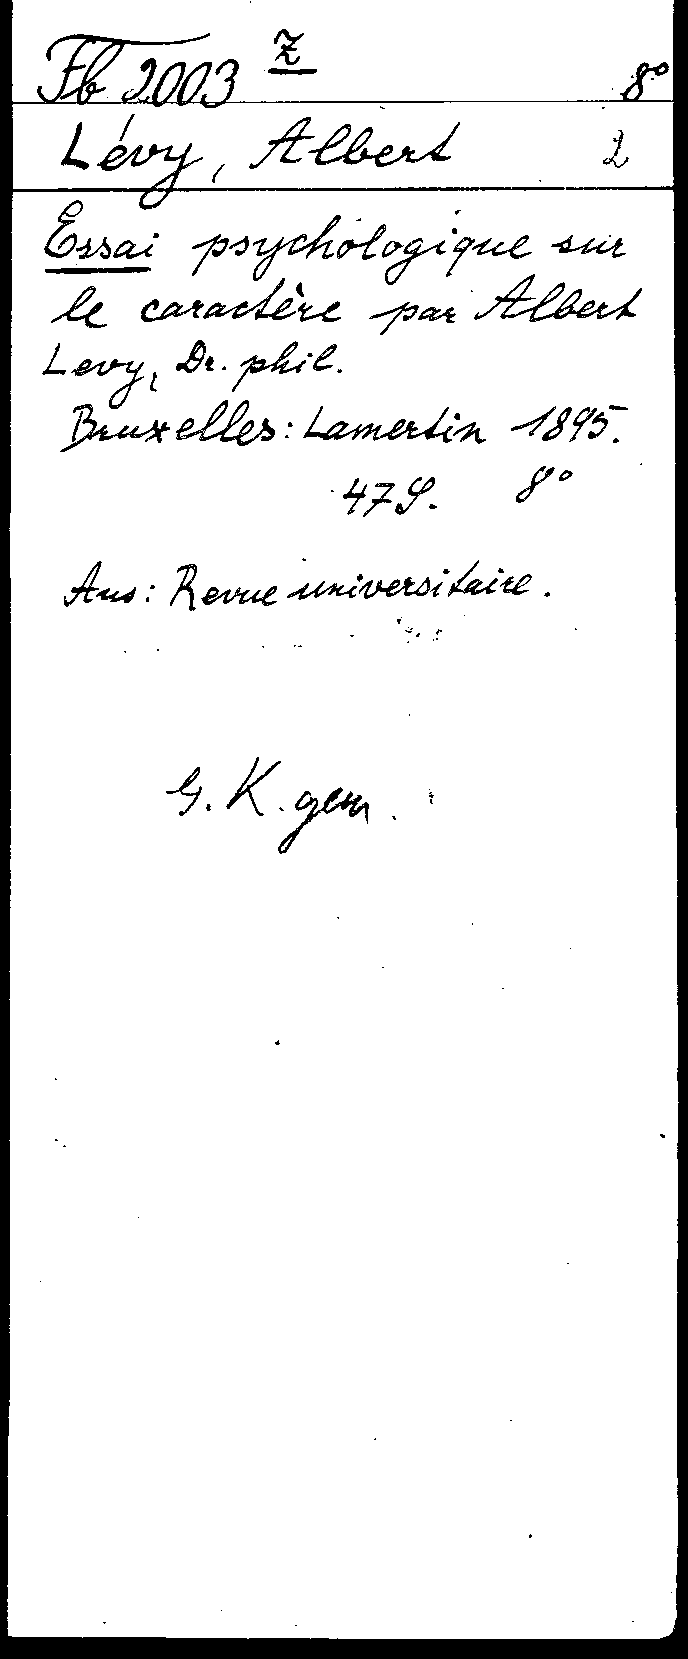 Fb 2003 Z 8°
Lévy, Albert 2
Essai psychologique sur
le caractère par Albert
Levy, Dr. phil.
Bruxelles: Lamertin 1895.
47 S. 8°
Aus: Revue universitaire.
G. K. gem.